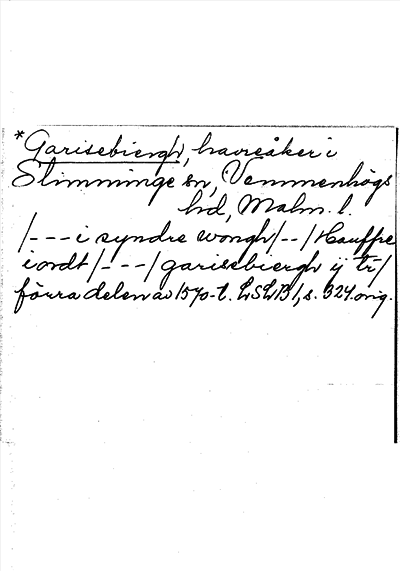 *Garisebiergh, havreåker i
Slimminge sn, Vemmenhögs
hd, Malm. l.
/---i syndre wongh/--/Hauffre
iordt/---/garisebiergh ij tr/
förra delen av 1570-t. LSLB 1, s. 324. orig.